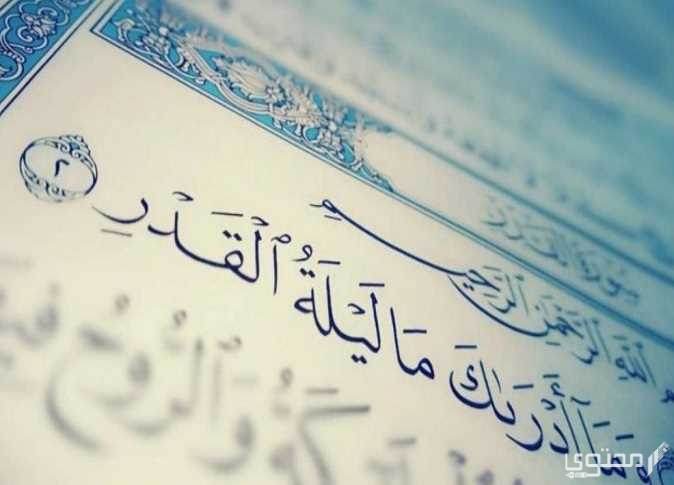 سورة القدر
الله الرحمن الرحيم
وَمَآ أَدْرَىٰكَ مَا لَيْلَةُ ٱلْقَدْرِ ٢
كَةُ وَٱلرُّوحُ فِي
محتوى